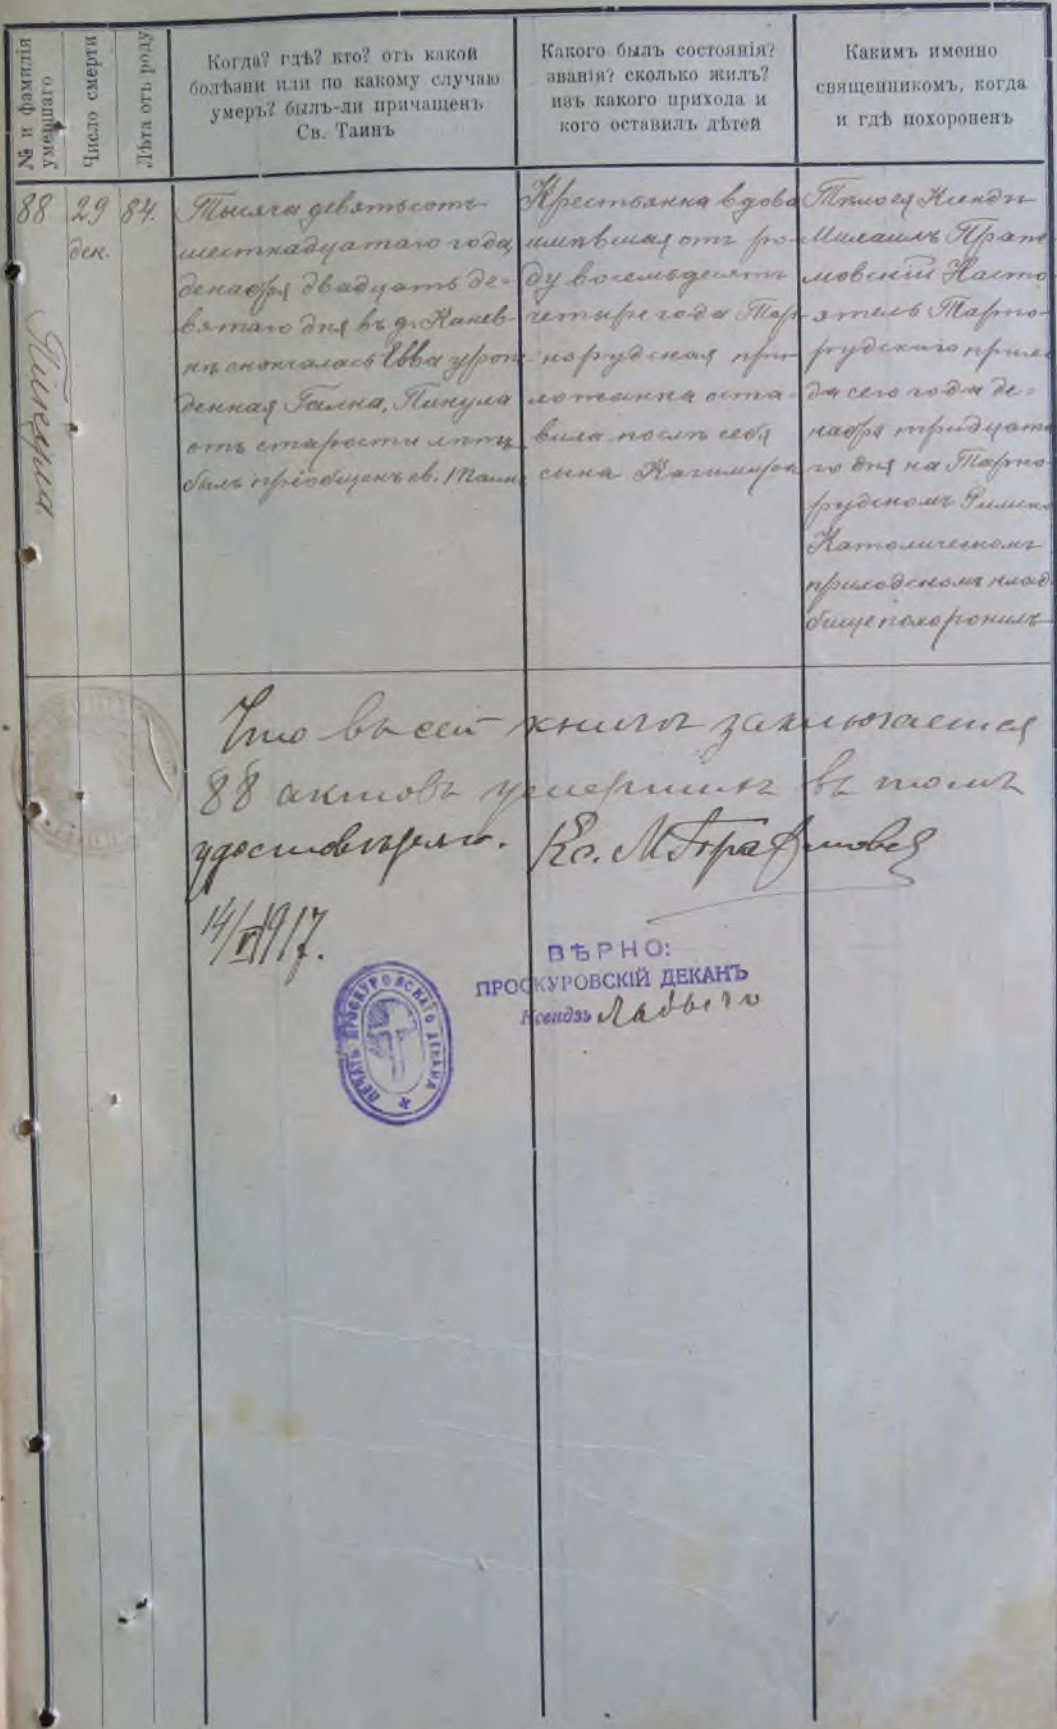 № и фамилія
умершаго
Число смерти
Лѣта отъ роду
Когда? гдѣ? кто? отъ какой
болѣзни или по какому случаю
умеръ? былъ-ли причащенъ
Св. Таинъ
Какого былъ состоянія?
званія? сколько жилъ?
изъ какого прихода и
кого оставилъ дѣтей
Какимъ именно
священникомъ, когда
и гдѣ похороненъ
88
Пикула
29
дек.
84.
Тысяча девятьсотъ
шестнадцатаго года,
декабря двадцать де-
вятаго дня въ д. Канев-
кѣ скончалась Евва урож
денная Галка, Пикула
отъ старости лѣтъ
былъ пріобщенъ св. Таинъ
Крестьянка вдова
имѣвшая отъ ро-
ду восемьдесятъ
четыре года Тар-
норудская при-
хожанка оста-
вила послѣ себя
сына Казимира
Тѣло ея Ксендзъ
Михаилъ
Насто
ятель Тарно-
рудскаго прихо
да сего года де-
кабря тридцата
го дня на Тарно
рудскомъ Римско
Католическомъ
приходскомъ клад
бище похоронилъ
Что въ сей книгѣ заключается
88 актовъ умершихъ въ томъ
удостовѣряю. Кс. М.
14/VI 1917.
ВѢРНО:
ПРОСКУРОВСКІЙ ДЕКАНЪ
Ксендзъ
ПЕЧАТЬ ПРОСКУРОВСКАГО ДЕКАНА